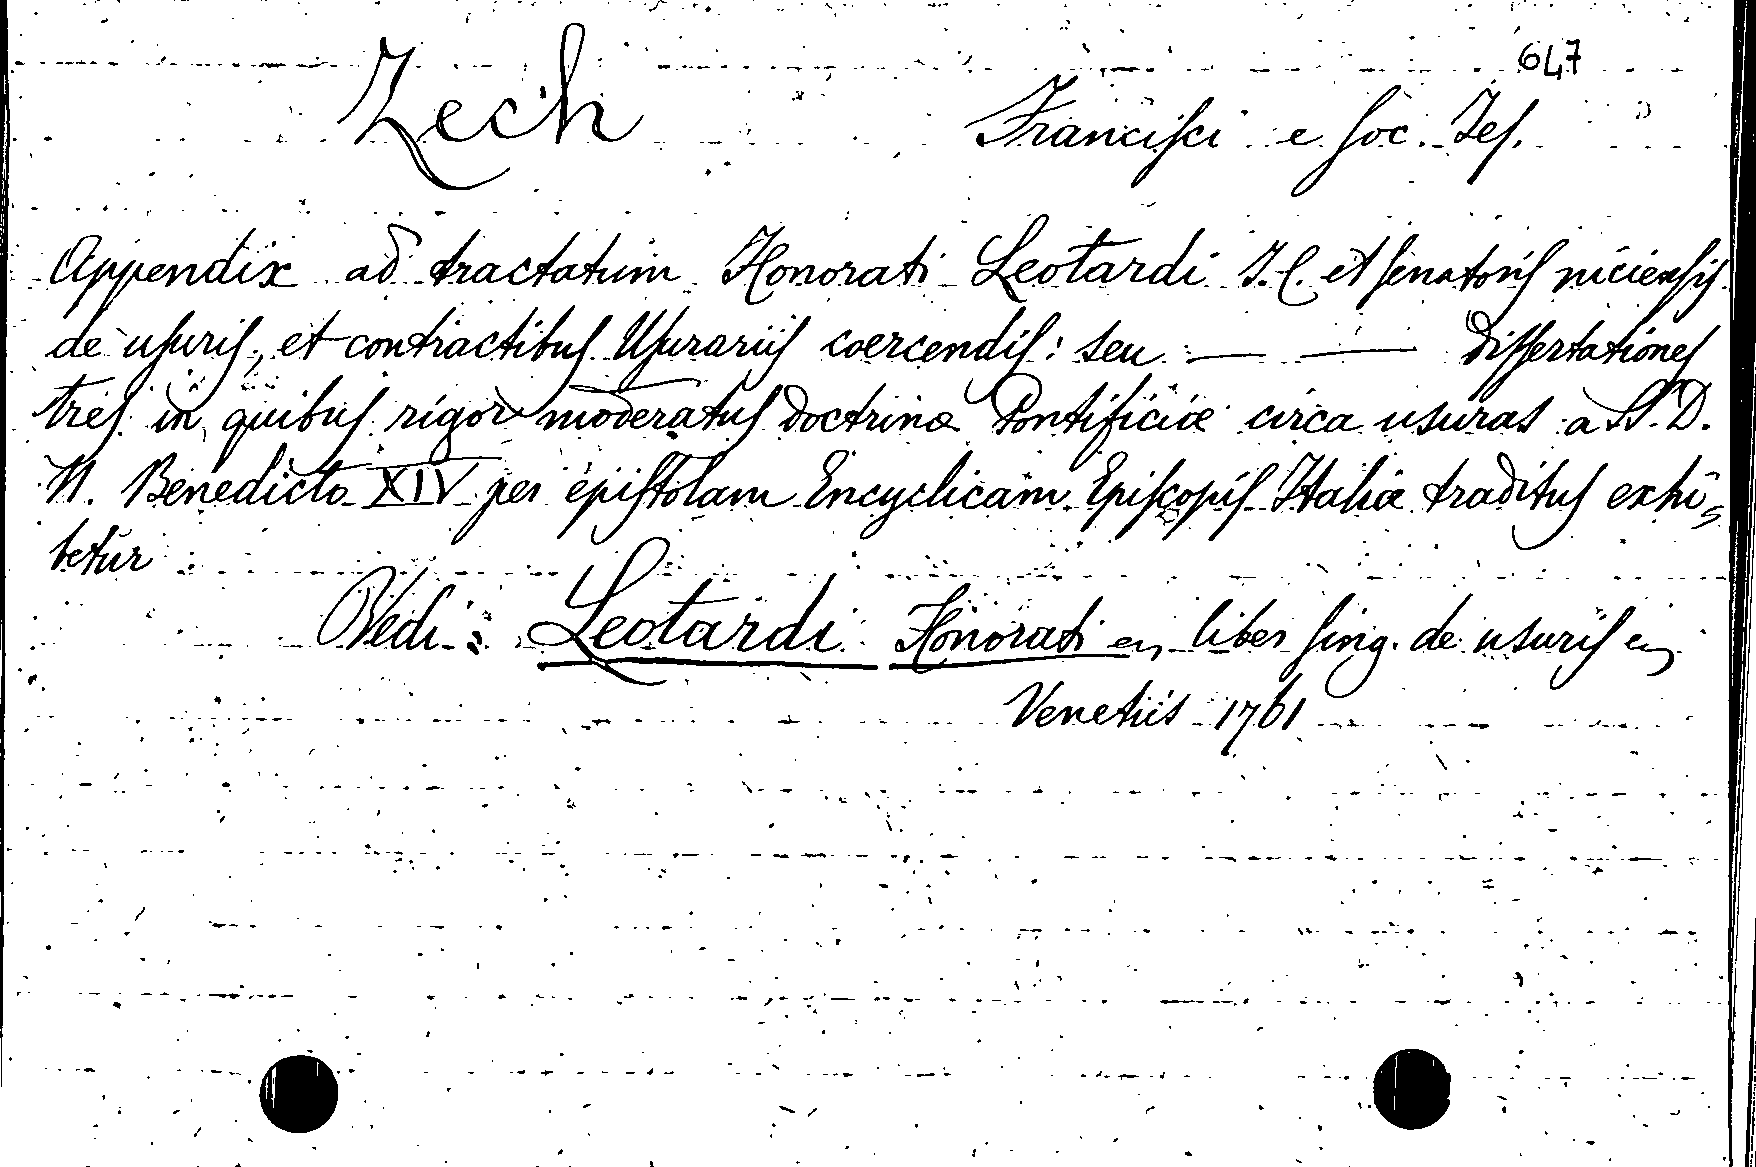 647
Zech Franciſci e Soc. Jeſ.
Appendix ad tractatum Honorati Leotardi J. C. et ſenatoriſ niciensiſ
de uſuriſ, et contractibuſ Uſurariiſ coercendiſ: seu — — Diſſertationeſ
treſ in quibuſ rigor moderatuſ Doctrinæ Pontificiæ circa usuras a SS. D.
N. Benedicto XIV per epiſtolam Encyclicam Epiſcopiſ Italiæ tradituſ exhi=
betur
Vedi: Leotardi Honorati liber ſing. de usuriſ
Venetiis 1761